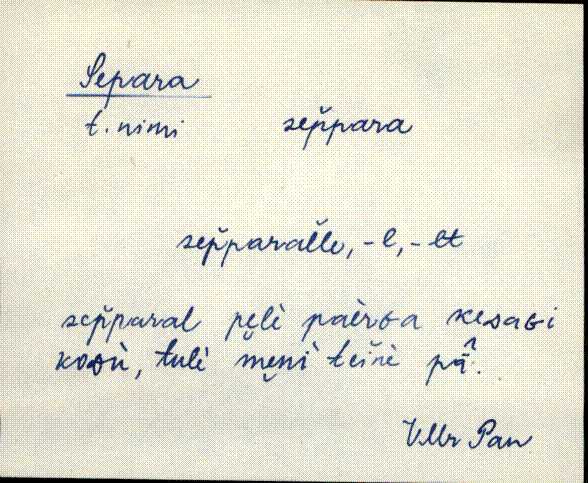 Separa
t. nimi      sep̆para
sep̆paralle, -l, -lt
sep̆paral pe̮lì paèrɢa kesaɢi
kosù, tulì me̮nì teinè pā̂.
VMr Pan